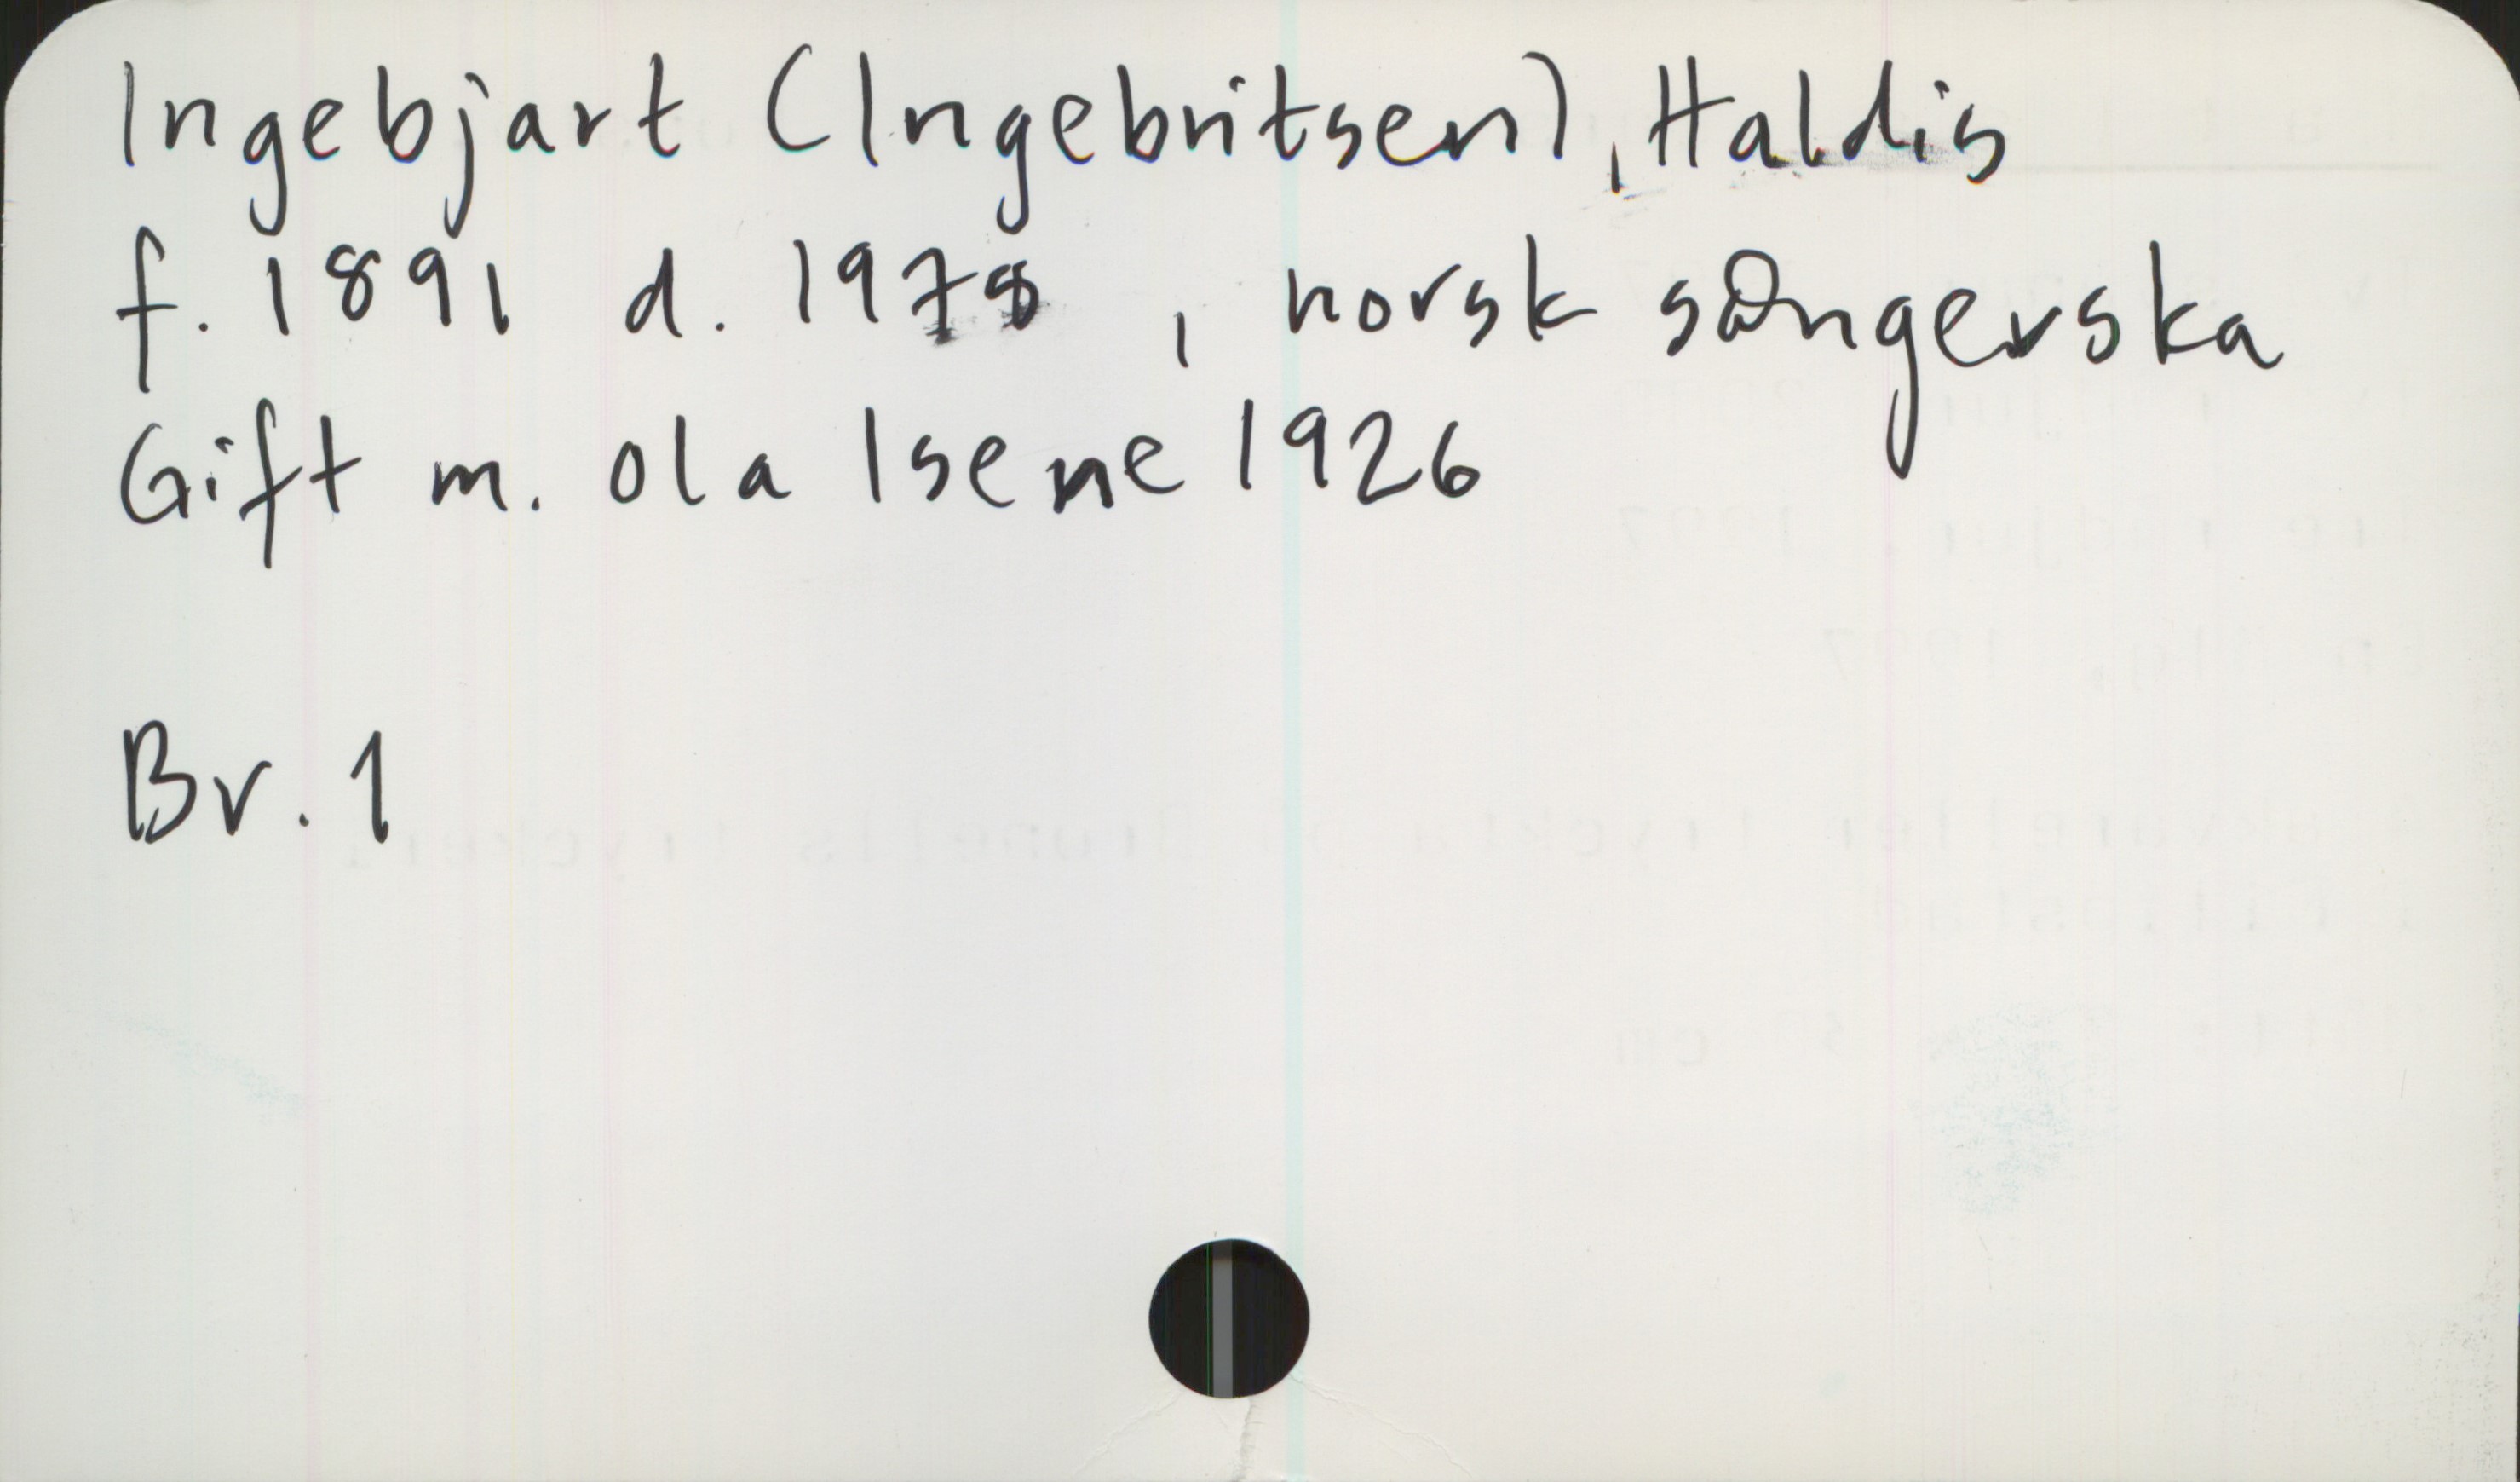 Ingebjart (Ingebritsen), Haldis
f. 1891 d. 1978, norsk sångerska
Gift m. Ola Isene 1926
Br. 1